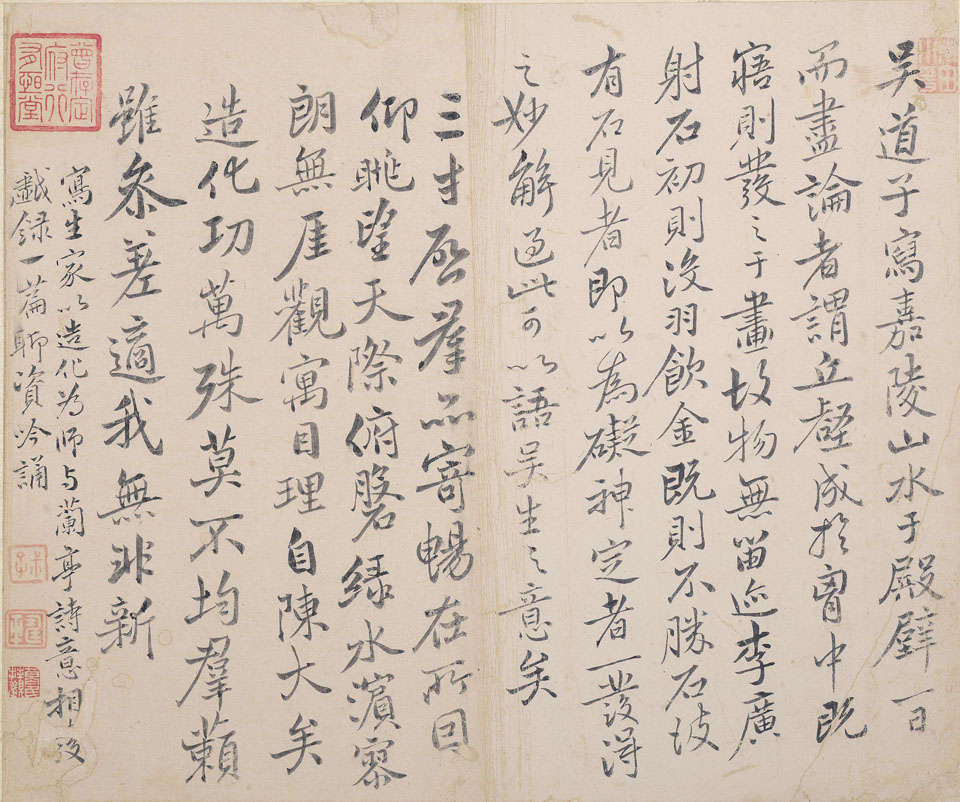 吳道子寫嘉陵山水于殿壁一日
而盡論者謂丘壑成於胷中既
寤則發之于畫故物無留迹李廣
射石初則沒羽飲金既則不勝石彼
有石見者即以為礙神定者一發得
之妙解過此可以語吳生之意矣
三才啟羣品寄暢在所因
仰眺望天際俯磐綠水濵寥
朗無厓觀寓目理自陳大矣
造化功萬殊莫不均羣籟
雖叅差適我無非新
寫生家以造化為師与蘭亭詩意相發
戲錄一篇聊資吟誦
曾存定
府行
有恆堂